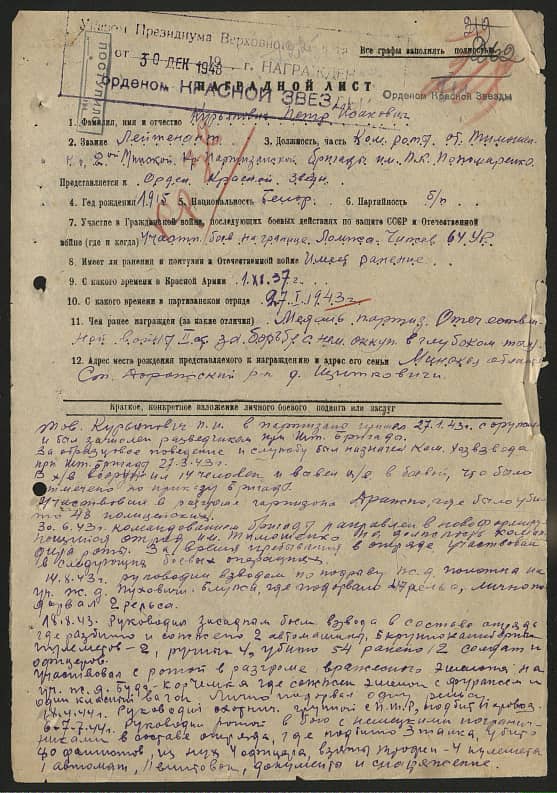 Указом Президиума Верховного Совета
212
от 30 ДЕК 1948 г. НАГРАЖДЕН
Все графы заполнять полностью
262
орденом КРАСНОЙ ЗВЕЗДЫ
НАГРАДНОЙ ЛИСТ
Орденом Красной Звезды
1. Фамилия, имя и отчество Курьянович Петр Исакович
2. Звание Лейтенант 3. Должность, часть Ком. роты от. Тимошен-
ко, 2ой Минской партизанской бригады им. П.К. Пономаренко
Представляется к Орден Красной Звезды
4. Год рождения 1915 5. Национальность Белор. 6. Партийность б/п
7. Участие в Гражданской войне, последующих боевых действиях по защите СССР и Отечественной
войне (где и когда) Участн. боев на границе Ломжа. Чижев 64 УР.
8. Имеет ли ранения и контузии в Отечественной войне Имеет ранение
9. С какого времени в Красной Армии 1.XI.37 г.
10. С какого времени в партизанском отряде 27.I.1943 г.
11. Чем ранее награжден (за какие отличия) Медаль партиз. Отечествен-
ной войны II ст. за борьбу с нем. оккуп. в глубоком тылу
12. Адрес места рождения представляемого к награждению и адрес его семьи Минская область
д. Щитковичи.
Краткое, конкретное изложение личного боевого подвига или заслуг
Тов. Курьянович П.И. в партизаны пришел 27.1.43 г. с оружием
и был зачислен разведчиком при Шт. бригады.
За образцовое поведение и службу был назначен ком. хозвзвода
при Шт. бригады 27.3.43 г.
вооружил 14 человек и вовлек в боевой, что было
отмечено по приказу бригады.
Участвовал в разгроме гарнизона, где было уби-
то 48 полицейских.
30.6.43 г. командованием бригады направлен в новоформиру-
ющийся отряд им. Тимошенко на должность коман-
дира роты. За время пребывания в отряде участвовал
в следующих боевых операциях.
14.8.43 г. руководил взводом по подрыву ж.д. полотна на
уч. ж.д. Пуховичи-, где подорвало 47 рельс, лично по-
дорвал 2 рельса.
18.8.43. Руководил засадном боем взвода в составе отряда
где разбито и сожжено 2 автомашины, крупнокалиберных
пулеметов-2, ручных 4, убито 54 ранено 12 солдат и
офицеров.
Участвовал с ротой в разгроме вражеского эшелона на
уч. ж.д. где сожжен эшелон с фуражом и
один классный вагон. Лично подорвал одну рельсу.
18.4.44 г. Руководил группой с П.Т.Р, подбит паровоз.
6-7.7.44 г. Руководил ротой в бою с немецкими
в составе отряда, где подбито 3 танка, убито
40 фашистов, из них 4 офицера, взяты трофеи - 4 пулемета
1 автомат, винтовок, документы и снаряжение.